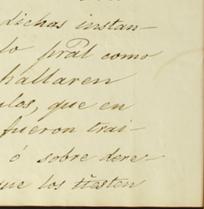 dichas instan-
lo pral como
hallaren
ulos, que en
fueron trai-
ó sobre dere-
que los